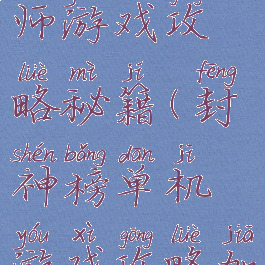 师游戏攻
lüè mì jí fēng
略秘籍(封
shén bǎng dān jī
神榜单机
yóu xì gōng lüè jiā
游戏攻略加